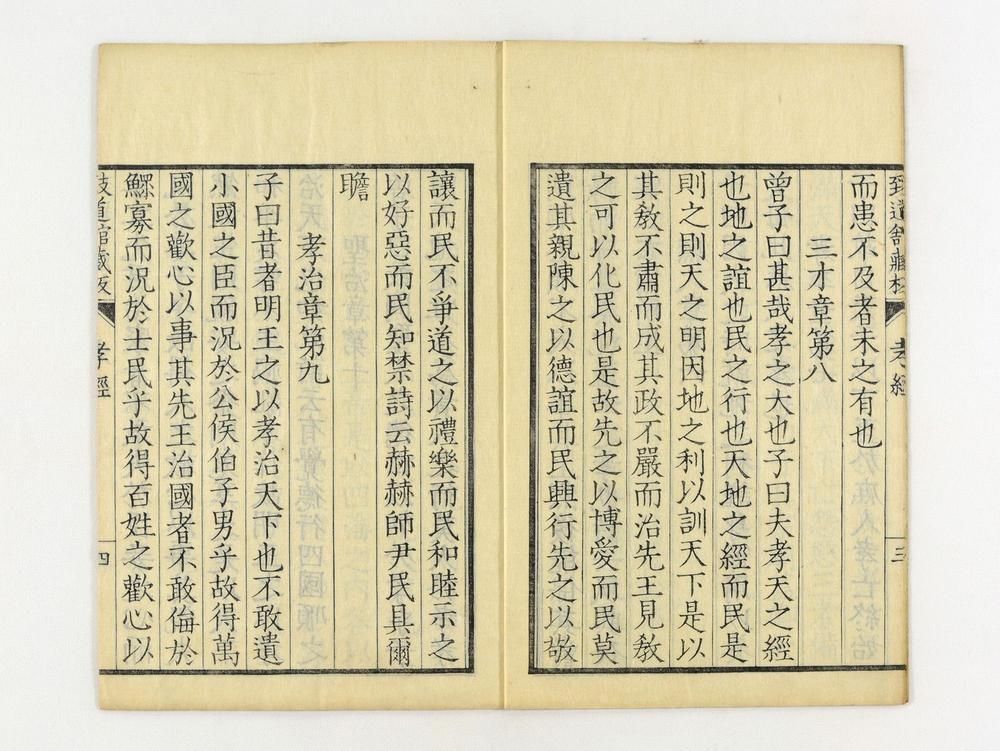 致道館藏板 孝經 三
而患不及者未之有也
三才章第八
曾子曰甚哉孝之大也子曰夫孝天之經
也地之誼也民之行也天地之經而民是
則之則天之明因地之利以訓天下是以
其敎不肅而成其政不嚴而治先王見敎
之可以化民也是故先之以博愛而民莫
遺其親陳之以德誼而民興行先之以敬
讓而民不爭道之以禮樂而民和睦示之
以好惡而民知禁詩云赫赫師尹民具爾
瞻
孝治章第九
子曰昔者明王之以孝治天下也不敢遺
小國之臣而況於公侯伯子男乎故得萬
國之歡心以事其先王治國者不敢侮於
鰥寡而況於士民乎故得百姓之歡心以
致道館藏板 孝經 四